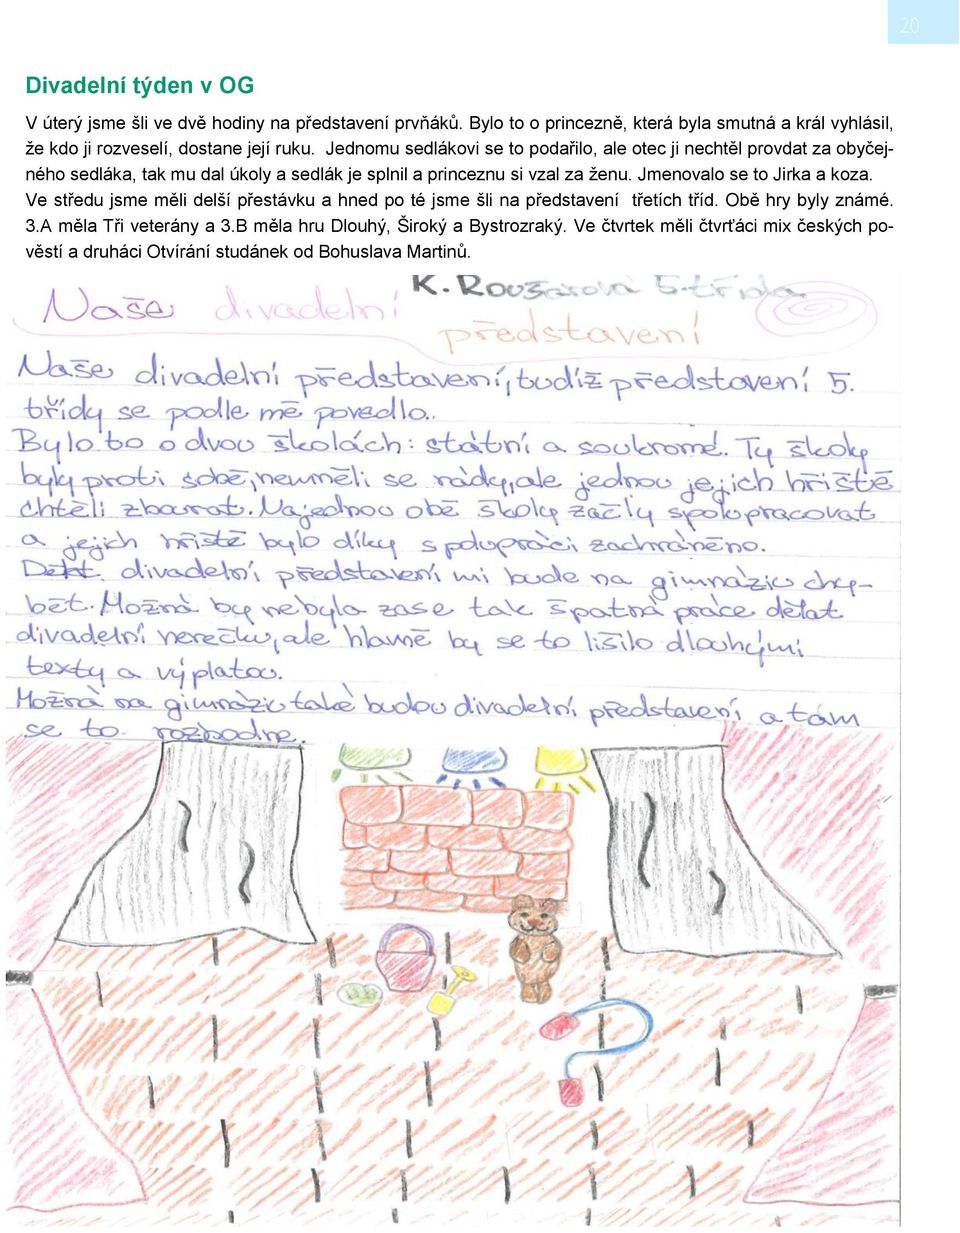 20
Divadelní týden v OG
V úterý jsme šli ve dvě hodiny na představení prvňáků. Bylo to o princezně, která byla smutná a král vyhlásil,
že kdo ji rozveselí, dostane její ruku. Jednomu sedlákovi se to podařilo, ale otec ji nechtěl provdat za obyčej-
ného sedláka, tak mu dal úkoly a sedlák je splnil a princeznu si vzal za ženu. Jmenovalo se to Jirka a koza.
Ve středu jsme měli delší přestávku a hned po té jsme šli na představení třetích tříd. Obě hry byly známé.
3.A měla Tři veterány a 3.B měla hru Dlouhý, Široký a Bystrozraký. Ve čtvrtek měli čtvrťáci mix českých po-
věstí a druháci Otvírání studánek od Bohuslava Martinů.
K. Roušarová 5. třída
Naše divadelní
představení
Naše divadelní představení, tudíž představení 5.
třídy se podle mě povedlo.
Bylo to o dvou školách: státní a soukromé. Ty školy
byly proti sobě, neuměli se rády, ale jednou jejich hřiště
chtěli zbourat. Najednou obě školy začly spolupracovat
a jejich hřiště bylo díky spolupráci zachráněno.
divadelní představení mi bude na gimnáziu chy-
bět. Možná by nebyla zase tak špatná práce dělat
divadelní herečku, ale hlavně by se to lišilo dlouhými
texty a výplatou.
Možná na gimnáziu také budou divadelní představení a tam
se to rozhodne.